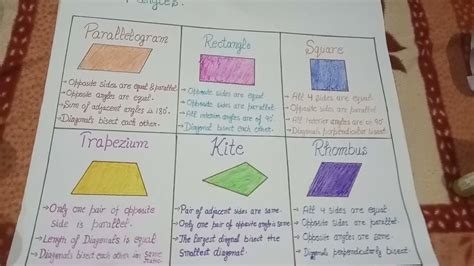 angles.
Parallelogram
→ Opposite sides are equal & parallel.
→ Opposite angles are equal.
→ Sum of adjacent angles is 180°.
→ Diagonals bisect each other.
Rectangle
→ Opposite sides are equal
→ Opposite sides are parallel.
→ All interior angles are of 90°.
→ Diagonal bisect each other.
Square
→ All 4 sides are equal
→ Opposite sides are parallel.
→ All interior angles are of 90°
→ Diagonals perpendicular bisect.
Trapezium
→ Only one pair of opposite
side is parallel.
→ Length of Diagonals is equal
→ Diagonals bisect each other in same
Ratio
Kite
→ Pair of adjacent sides are same.
→ Only one pair of opposite angle is same
→ The largest digonal bisect the
Smallest diagonal.
Rhombus
→ All 4 sides are equal
→ Opposite sides are parallel.
→ Opposite angles are same.
→ Diagonals perpendicularly bisect.